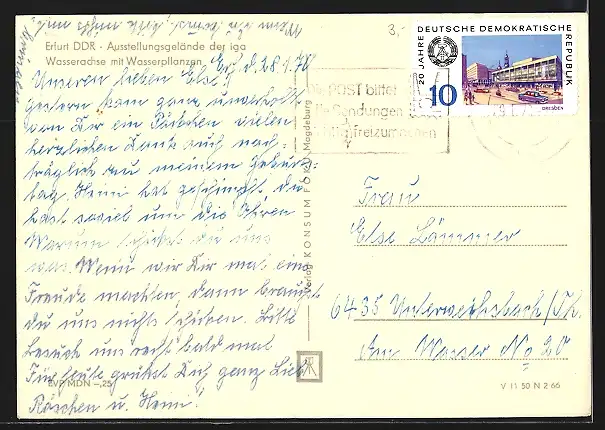 Erfurt DDR - Ausstellungsgelände der iga
Wasserachse mit Wasserpflanzen
Unseren lieben Else! Erf. d. 28.1.70
gestern kam ganz unverhofft
von Dir ein Päckchen vielen
herzlichen Dank auch nach-
träglich zu meinem Geburts-
tag. Heini hat geschimpft, du
hast soviel um die Ohren
Warum schickst du uns
was. Wenn wir Dir mal eine
Freude machten, dann brauchst
du uns nichts schicken. Bitte
Besuch uns recht bald mal
Für heute grüßt Dich ganz Lieb
Röschen u. Heini!
EVP MDN -,25
Verlag KONSUM FOKO Magdeburg
3,-
20 JAHRE DEUTSCHE DEMOKRATISCHE REPUBLIK
10
DRESDEN
Die POST bittet
alle Sendungen
freizumachen
Frau
Else Lämmer
6435 Unterweißbach/Th.
Am Wasser No 20
V 11 50 N 2 66